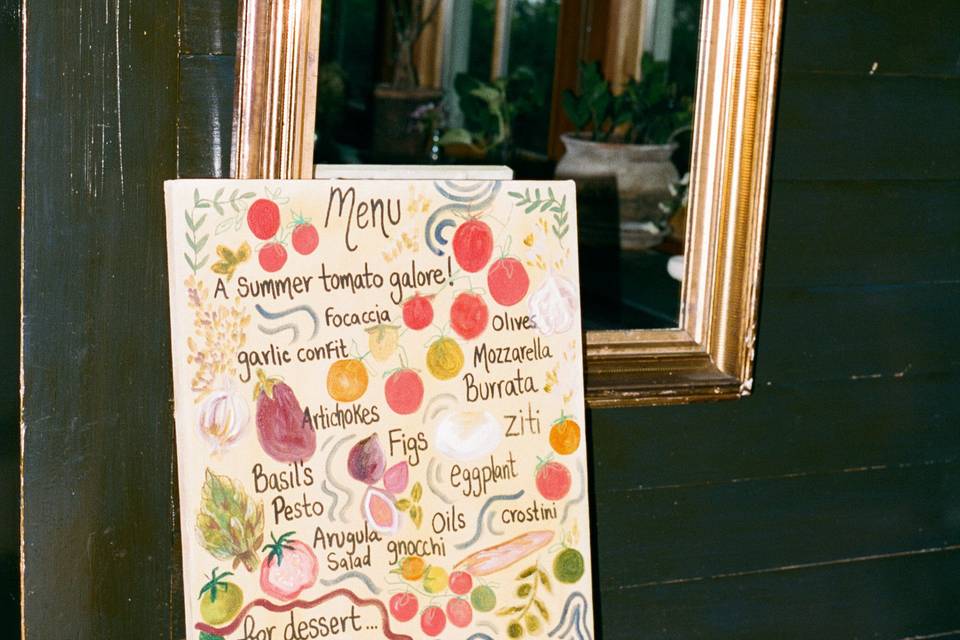 Menu
A Summer tomato galore!
Focaccia
Olives
garlic confit
Mozzarella
Burrata
Artichokes
Ziti
Figs
eggplant
Basil's
Pesto
Oils
crostini
Arugula
Salad
gnocchi
for dessert...